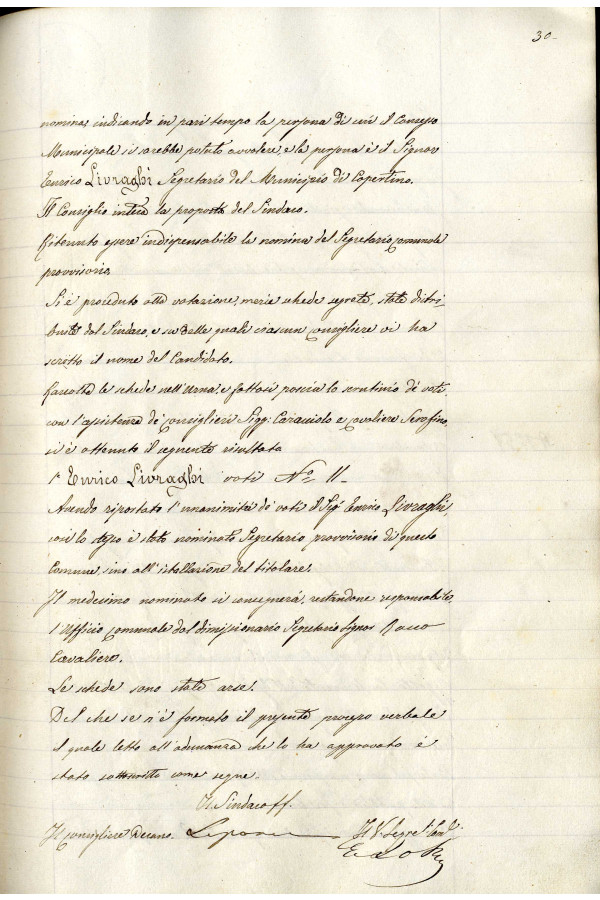 30-
nomina, indicando in pari tempo la persona di cui il Consesso
Municipale si sarebbe potuto avvalere, e la persona è il Signor
Enrico Livraghi Segretario del Municipio di Copertino.
Il Consiglio intesa la proposta del Sindaco.
Ritenuto essere indispensabile la nomina del Segretario comunale
provvisorio
Si è proceduto alla votazione, merie schede segrete, state distri-
buite dal Sindaco, e su delle quali ciascun consigliere vi ha
scritto il nome del Candidato.
Raccolte le schede nell'urna, e fattosi poscia lo scrutinio de' voti
con l'assistenza de' consiglieri Sigg: Caracciolo e cavaliere Serafino
si è ottenuto il seguente risultato
1° Enrico Livraghi voti N.° 11-
Avendo riportato l'unanimità de' voti il Sig.r Enrico Livraghi
così lo stesso è stato nominato Segretario provvisorio di questo
Comune, sino all'istallazione del titolare.
Il medesimo nominato si consegnerà, restandone responsabile,
l'Ufficio comunale dal dimissionario Segretario Signor Rocco
Cavaliere.
Le schede sono state arse.
Del che se n'è formato il presente processo verbale
il quale letto all'adunanza che lo ha approvato è
stato sottoscritto come segue.
Il Sindaco ff.
Il consigliere Decano. Il V. Segret.